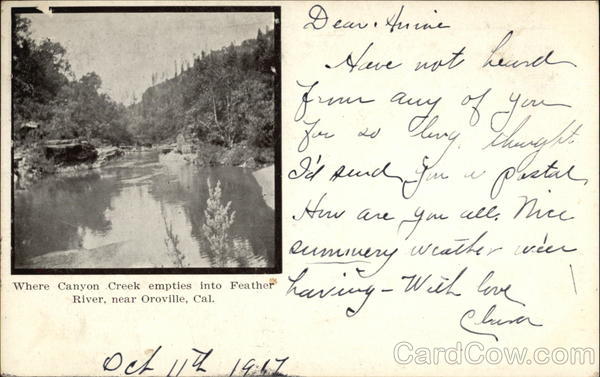 Dear
Have not heard
from any of you
for so long, thought
I'd send you a postal.
How are you all. Nice
summery weather we're
having – With love
Where Canyon Creek empties into Feather
River, near Oroville, Cal.
Oct 11th 1917
CardCow.com